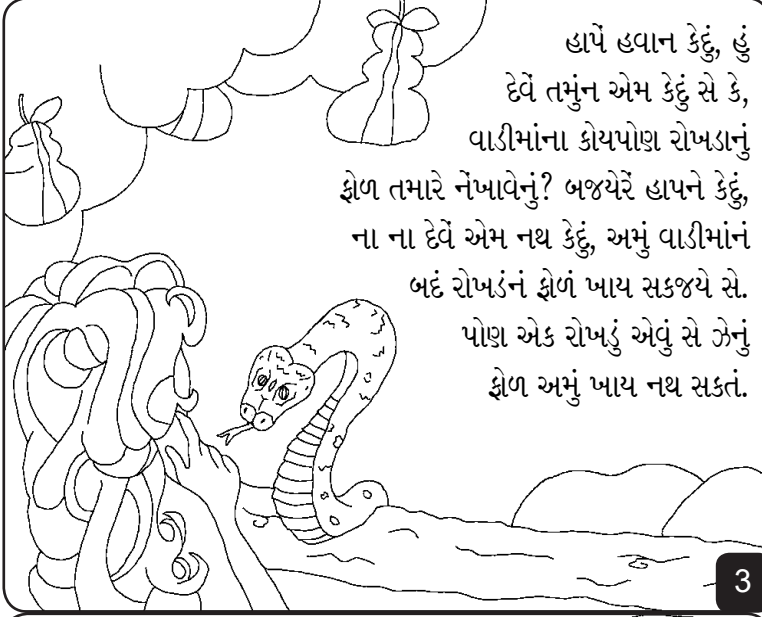 હાપેં હવાન કેદું, હું
દેવેં તમુંન એમ કેદું સે કે,
વાડીમાંના કોયપોણ રોખડાનું
ફોળ તમારે નેંખાવેનું? બજયેરેં હાપને કેદું,
ના ના દેવેં એમ નથ કેદું, અમું વાડીમાંનં
બદં રોખડંનં ફોળં ખાય સકજયે સે.
પોણ એક રોખડું એવું સે ઝેનું
ફોળ અમું ખાય નથ સકતં.
3